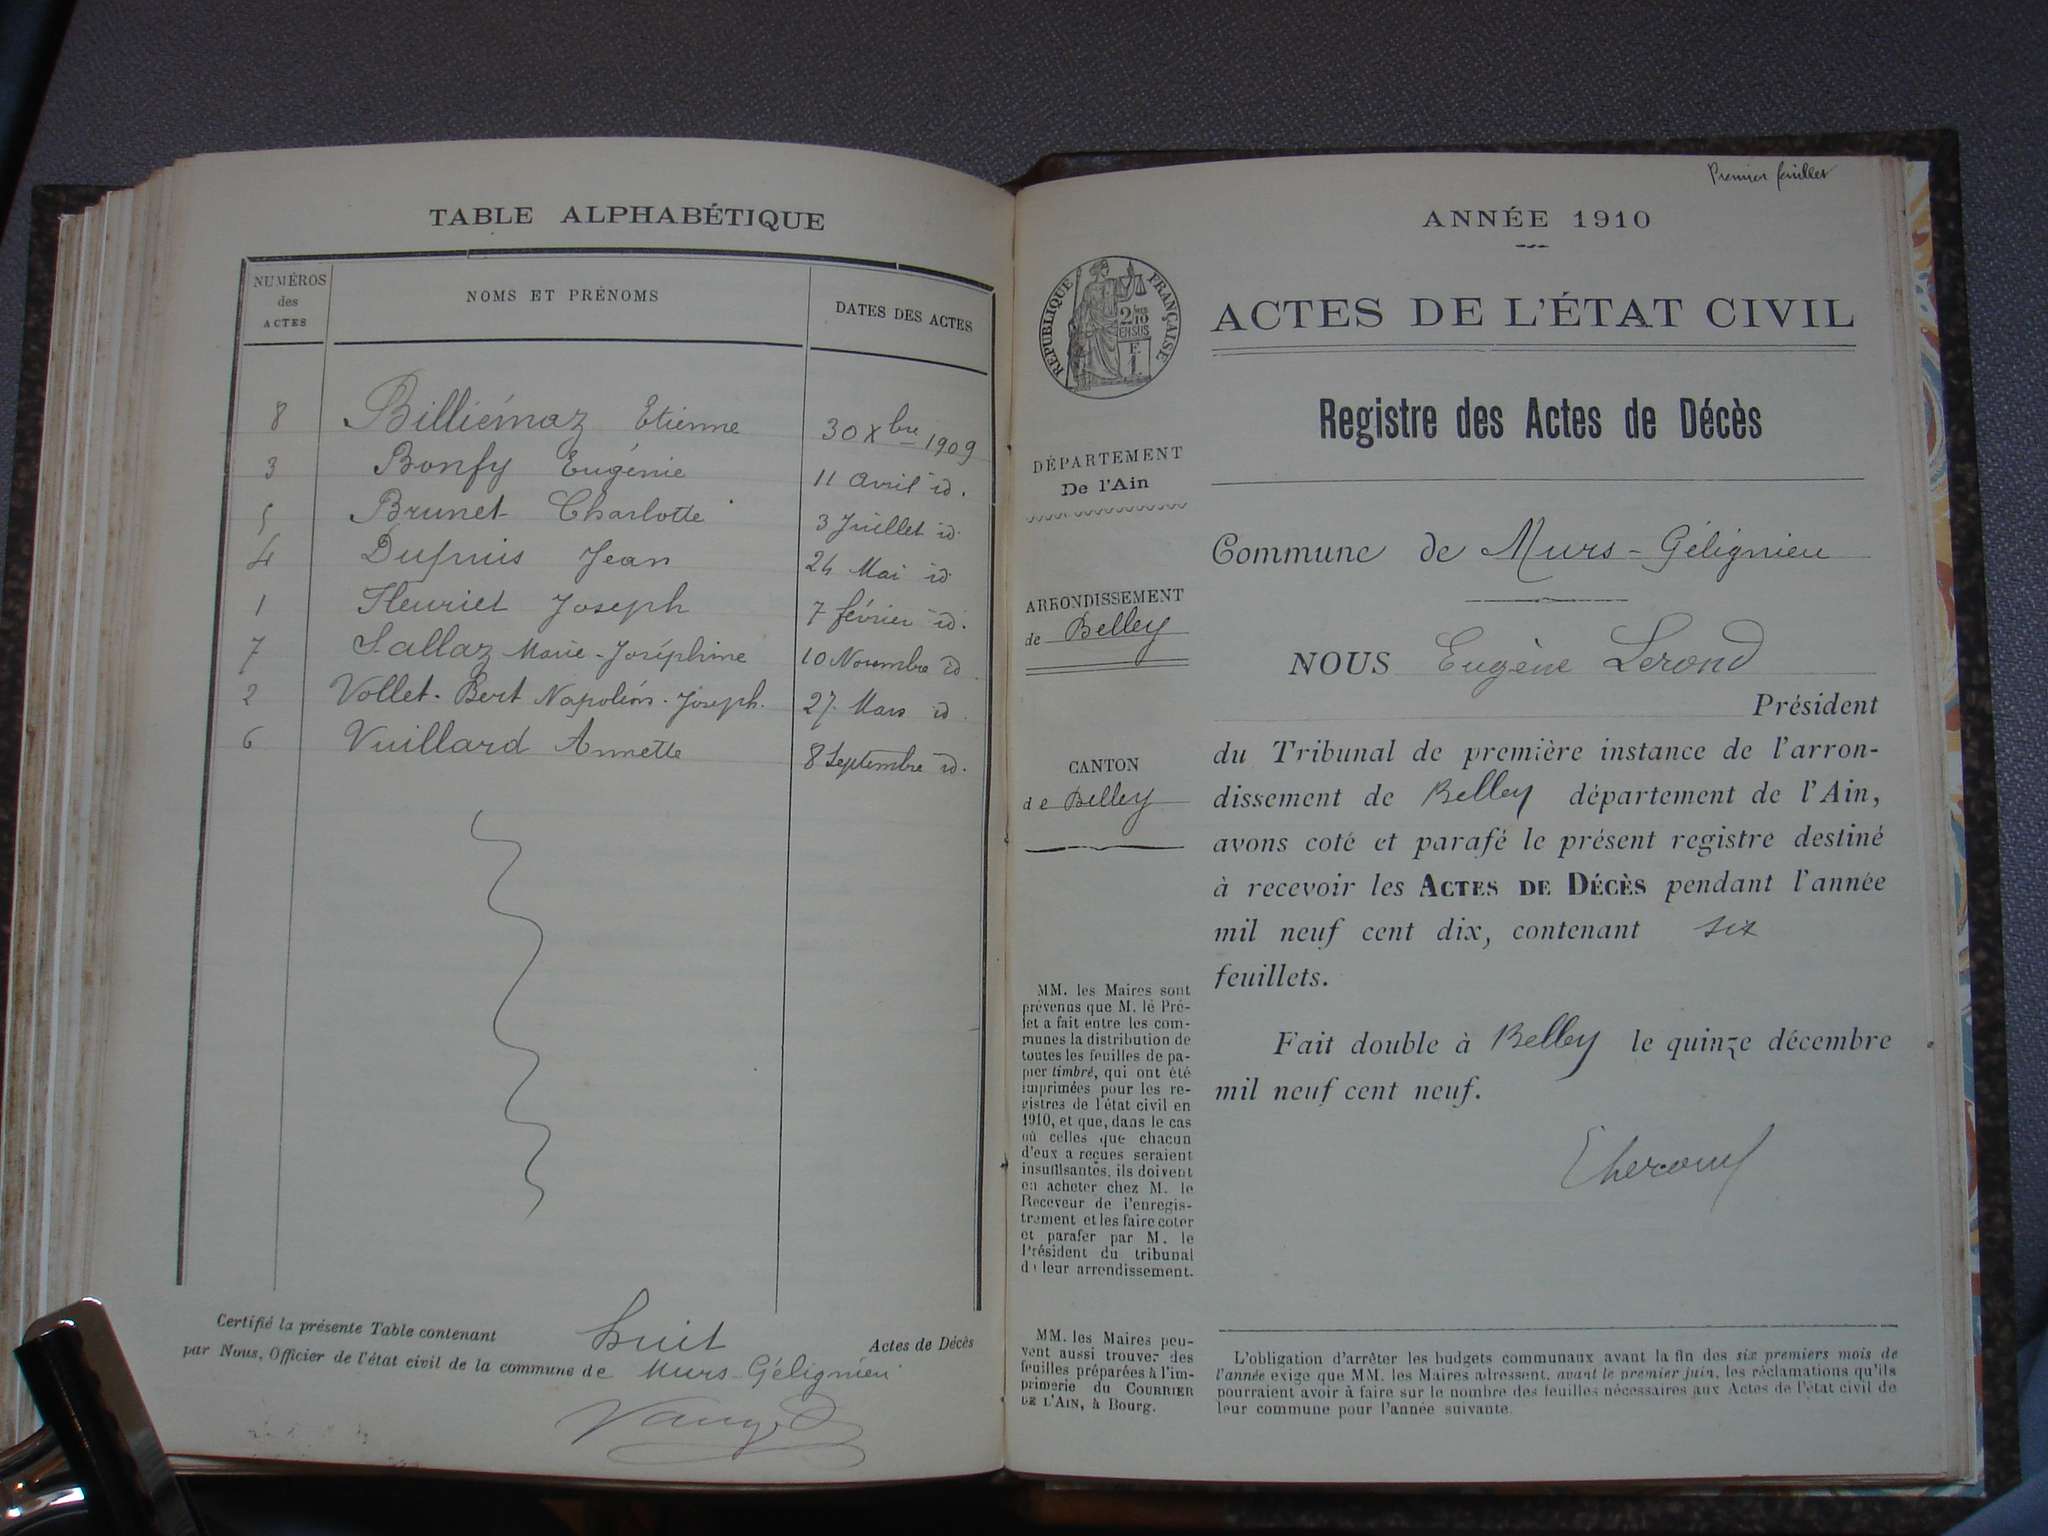 TABLE ALPHABÉTIQUE
NUMÉROS des ACTES
NOMS ET PRÉNOMS
DATES DES ACTES
8 Billiémaz Etienne 30 Xbre 1909
3 Bonfy Eugénie 11 avril id.
5 Brunet Charlotte 3 Juillet id.
4 Dupuis Jean 24 Mai id.
1 Fleuriet Joseph 7 février id.
7 Sallaz Marie-Joséphine 10 Novembre id.
2 Vollet-Bert Napoléon-Joseph. 27 Mars id.
6 Vuillard Annette 8 Septembre id.
Certifié la présente Table contenant huit Actes de Décès
par Nous, Officier de l'état civil de la commune de Murs-Gélignieu
Premier feuillet
ANNÉE 1910
RÉPUBLIQUE FRANÇAISE
2/10 EN SUS
F. 1.
ACTES DE L'ÉTAT CIVIL
Registre des Actes de Décès
DÉPARTEMENT
De l'Ain
ARRONDISSEMENT
de Belley
CANTON
de Belley
MM. les Maires sont
prévenus que M. le Pré-
fet a fait entre les com-
munes la distribution de
toutes les feuilles de pa-
pier timbré, qui ont été
imprimées pour les re-
gistres de l'état civil en
1910, et que, dans le cas
où celles que chacun
d'eux a reçues seraient
insuffisantes, ils doivent
en acheter chez M. le
Receveur de l'enregis-
trement et les faire coter
et parafer par M. le
Président du tribunal
de leur arrondissement.
MM. les Maires peu-
vent aussi trouver des
feuilles préparées à l'im-
primerie du COURRIER
DE L'AIN, à Bourg.
Commune de Murs-Gélignieu
NOUS Eugène Lerond
Président
du Tribunal de première instance de l'arron-
dissement de Belley département de l'Ain,
avons coté et parafé le présent registre destiné
à recevoir les ACTES DE DÉCÈS pendant l'année
mil neuf cent dix, contenant six
feuillets.
Fait double à Belley le quinze décembre
mil neuf cent neuf.
L'obligation d'arrêter les budgets communaux avant la fin des six premiers mois de
l'année exige que MM. les Maires adressent, avant le premier juin, les réclamations qu'ils
pourraient avoir à faire sur le nombre des feuilles nécessaires aux Actes de l'état civil de
leur commune pour l'année suivante.